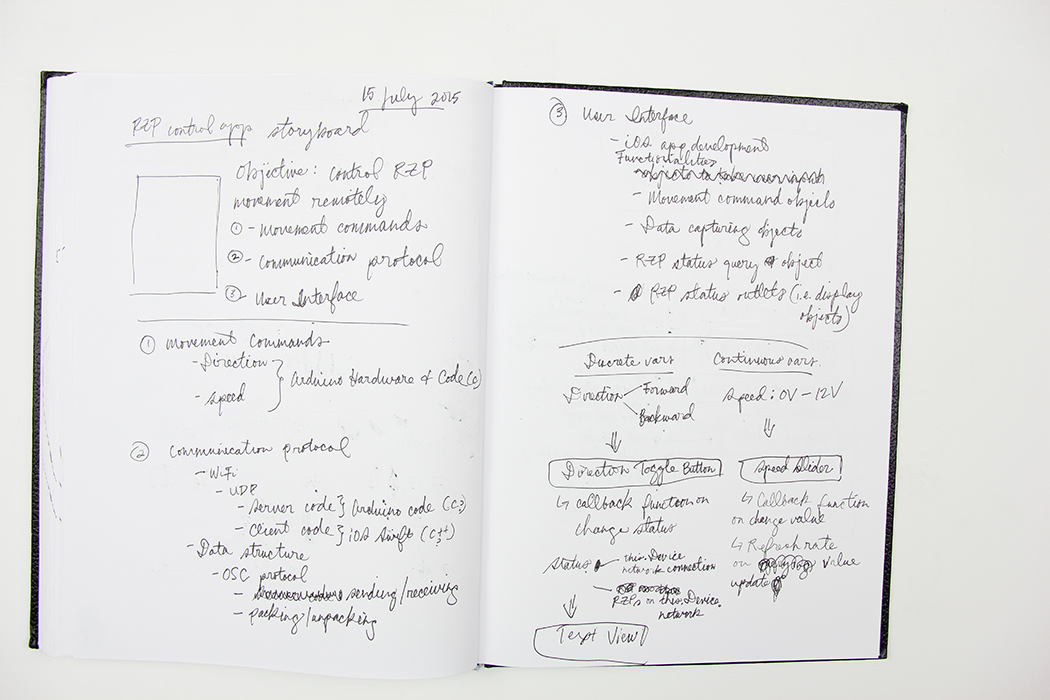 15 July 2015
RZP control app storyboard
Objective: control RZP
movement remotely
① - movement commands
② - communication protocol
③ - User Interface
① Movement Commands
- Direction
- Speed
} Arduino Hardware & Code (C)
② Communication protocol
- WiFi
- UDP
- Server code } Arduino code (C)
- Client code } iOS Swift (C++)
- Data structure
- OSC protocol
- sending/receiving
- packing/unpacking
③ User Interface
- iOS app development
Functionalities
- Movement command objects
- Data capturing objects
- RZP status query object
- RZP status outlets (i.e. display
objects)
Discrete vars
Direction
Forward
Backward
⇓
Direction Toggle Button
↳ callback function on
change status
status
this Device
network connection
RZPs on this Device
network
⇓
Text View
Continuous vars.
Speed: 0V - 12V
⇓
Speed Slider
↳ Callback function
on change value
↳ Refresh rate
on value
update